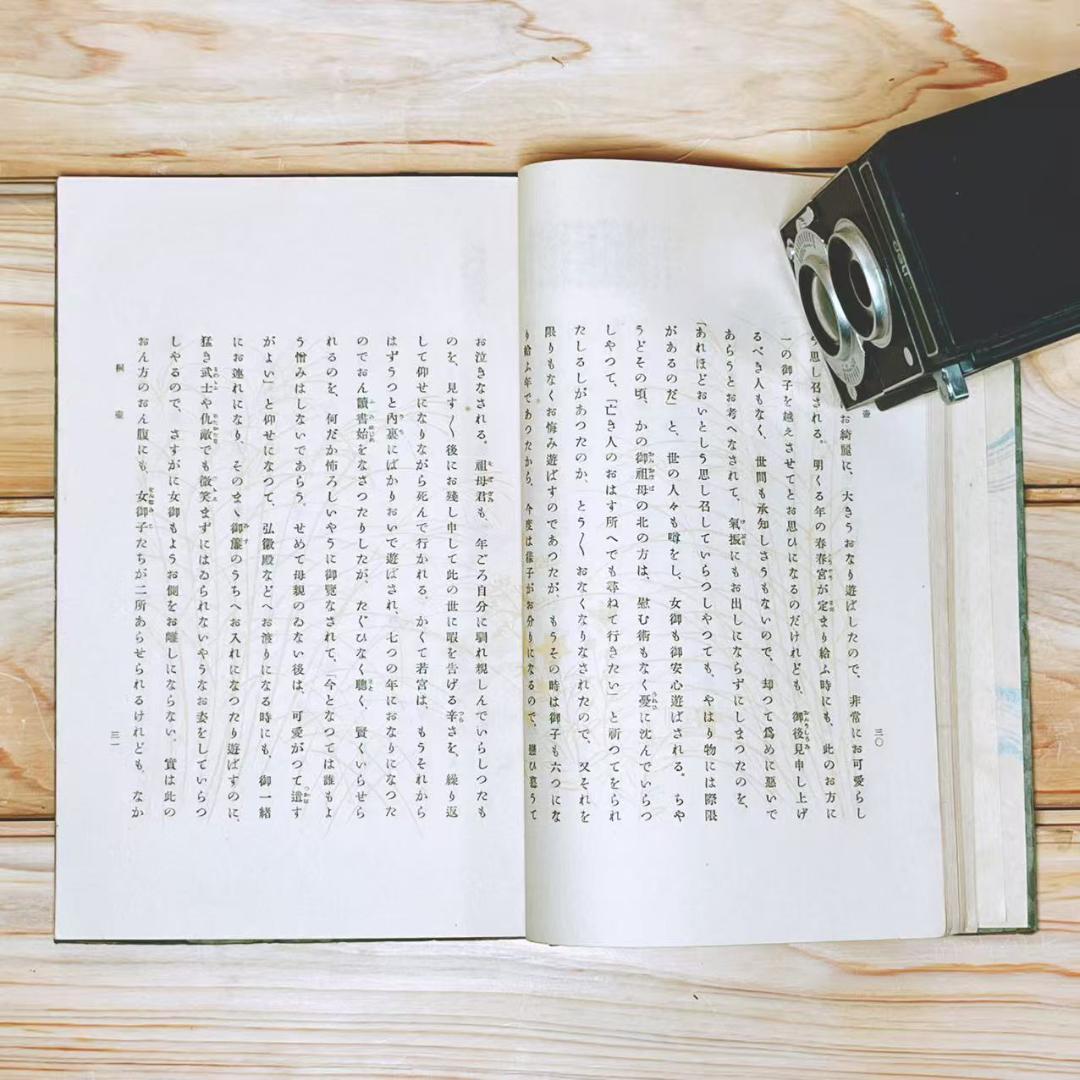 お綺麗に、大きうおなり遊ばしたので、非常にお可愛らし
う思し召される。明くる年の春春宮が定まり給ふ時にも、此のお方に
一の御子を越えさせてとお思ひになるのだけれども、御後見申し上げ
るべき人もなく、世間も承知しさうもないので、却つて爲めに惡いで
あらうとお考へなされて、氣振にもお出しにならずにしまつたのを、
「あれほどおいとしう思し召していらつしやつても、やはり物には際限
があるのだ」と、世の人々も噂をし、女御も御安心遊ばされる。ちや
うどその頃、かの御祖母の北の方は、慰む術もなく憂に沈んでいらつ
しやつて、「亡き人のおはす所へでも尋ねて行きたい」と祈つてをられ
たしるしがあつたのか、とう〱おなくなりなされたので、又それを
限りもなくお悔み遊ばすのであつたが、もうその時は御子も六つにな
り給ふ年であつたから、今度は樣子がお分りになるので、戀ひ慕うて
三〇
お泣きなされる。祖母君も、年ごろ自分に馴れ親しんでいらしつたも
のを、見す〱後にお殘し申して此の世に暇を告げる辛さを、繰り返
して仰せになりながら死んで行かれる。かくて若宮は、もうそれから
はずうつと內裏にばかりおいで遊ばされ、七つの年におなりになつた
のでおん讀書始をなさつたりしたが、たぐひなく聰く、賢くいらせら
れるのを、何だか怖ろしいやうに御覽なされて、「今となつては誰もよ
う憎みはしないであらう。せめて母親のゐない後は、可愛がつて遣す
がよい」と仰せになつて、弘徽殿などへお渡りになる時にも、御一緖
にお連れになり、そのまゝ御簾のうちへお入れになつたり遊ばすのに、
猛き武士や仇敵でも微笑まずにはゐられないやうなお姿をしていらつ
しやるので、さすがに女御もようお側をお離しにならない。實は此の
おん方のおん腹にも、女御子たちが二所あらせられるけれども、なか
桐壺
三一